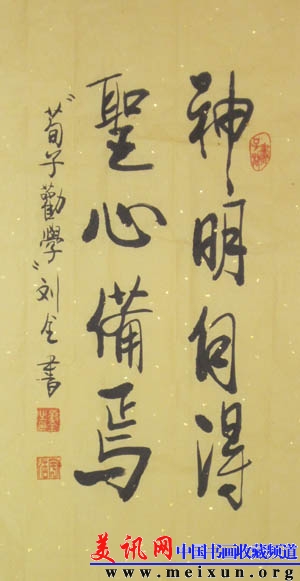 神明自得
聖心備焉
“荀子勸學”刘金書
美讯网 中国书画收藏频道
www.meixun.org